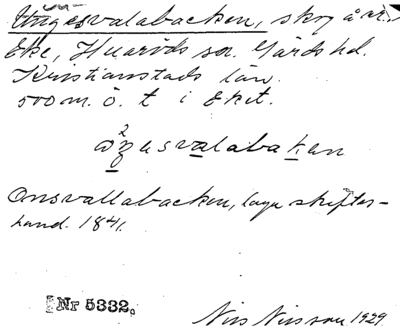 Ungesvalabacken, skog å ar.
Eke, Huaröds sn. Gärds hd.
Kristianstads län.
500 m. ö. t i Eket.
Onsvallabacken, laga skifteshand. 1841.
Nr 5332.
Nils Nilsson 1929